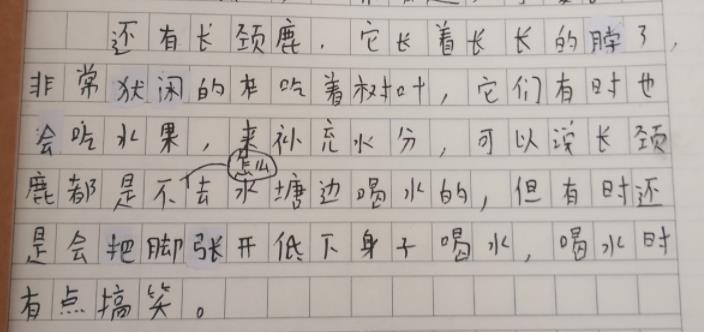 还有长颈鹿，它长着长长的脖子，
非常悠闲的在吃着树叶，它们有时也
会吃水果，来补充水分，可以说长颈
鹿都是不怎么去水塘边喝水的，但有时还
是会把脚张开低下身子喝水，喝水时
有点搞笑。